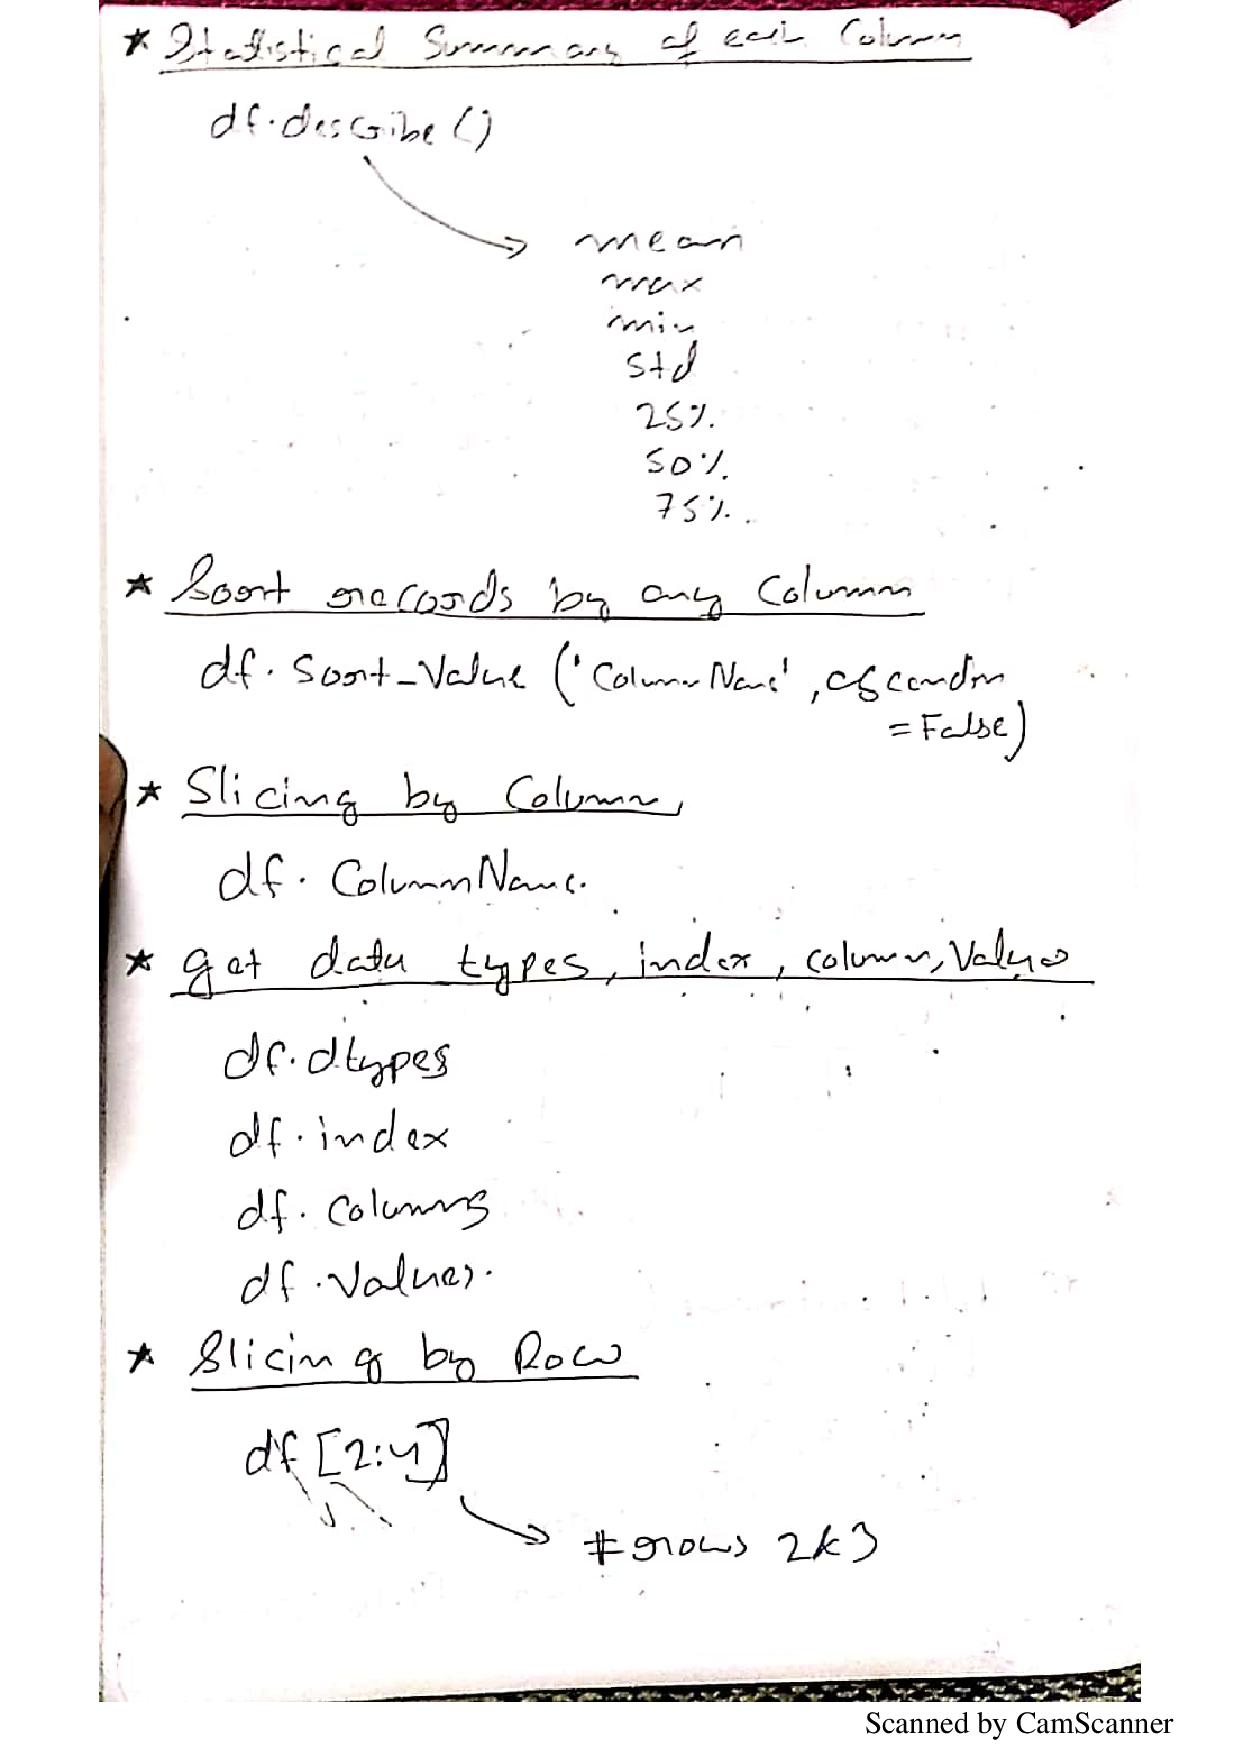 * Statistical Summary of each Column
df.describe()
mean
max
min
std
25%
50%
75%.
* Sort records by any Column
df.Sort_Value ('ColumnName', ascendin
= False)
* Slicing by Column,
df. ColumnName.
* get data types, index, column, Values
df.dtypes
df.index
df. Columns
df.Values.
* Slicing by Row
df [2:4]
# rows 2 & 3
Scanned by CamScanner